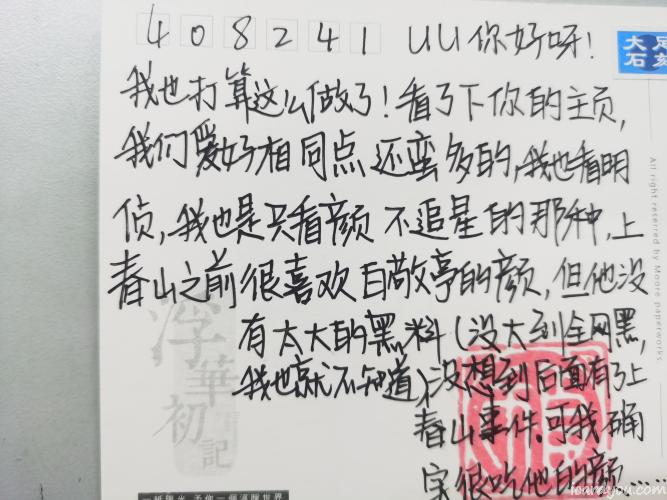 408241 UU你好呀!
大足
石刻
我也打算这么做了!看了下你的主页,
我们爱好相同点还蛮多的,我也看明
侦,我也是只看颜不追星的那种,上
春山之前很喜欢白敬亭的颜,但他没
有太大的黑料(没大到全网黑,
我也就不知道),没想到后面有了上
春山事件.可我确
实很吃他的颜……
浮華初記
All right reserred by Moore paperworks